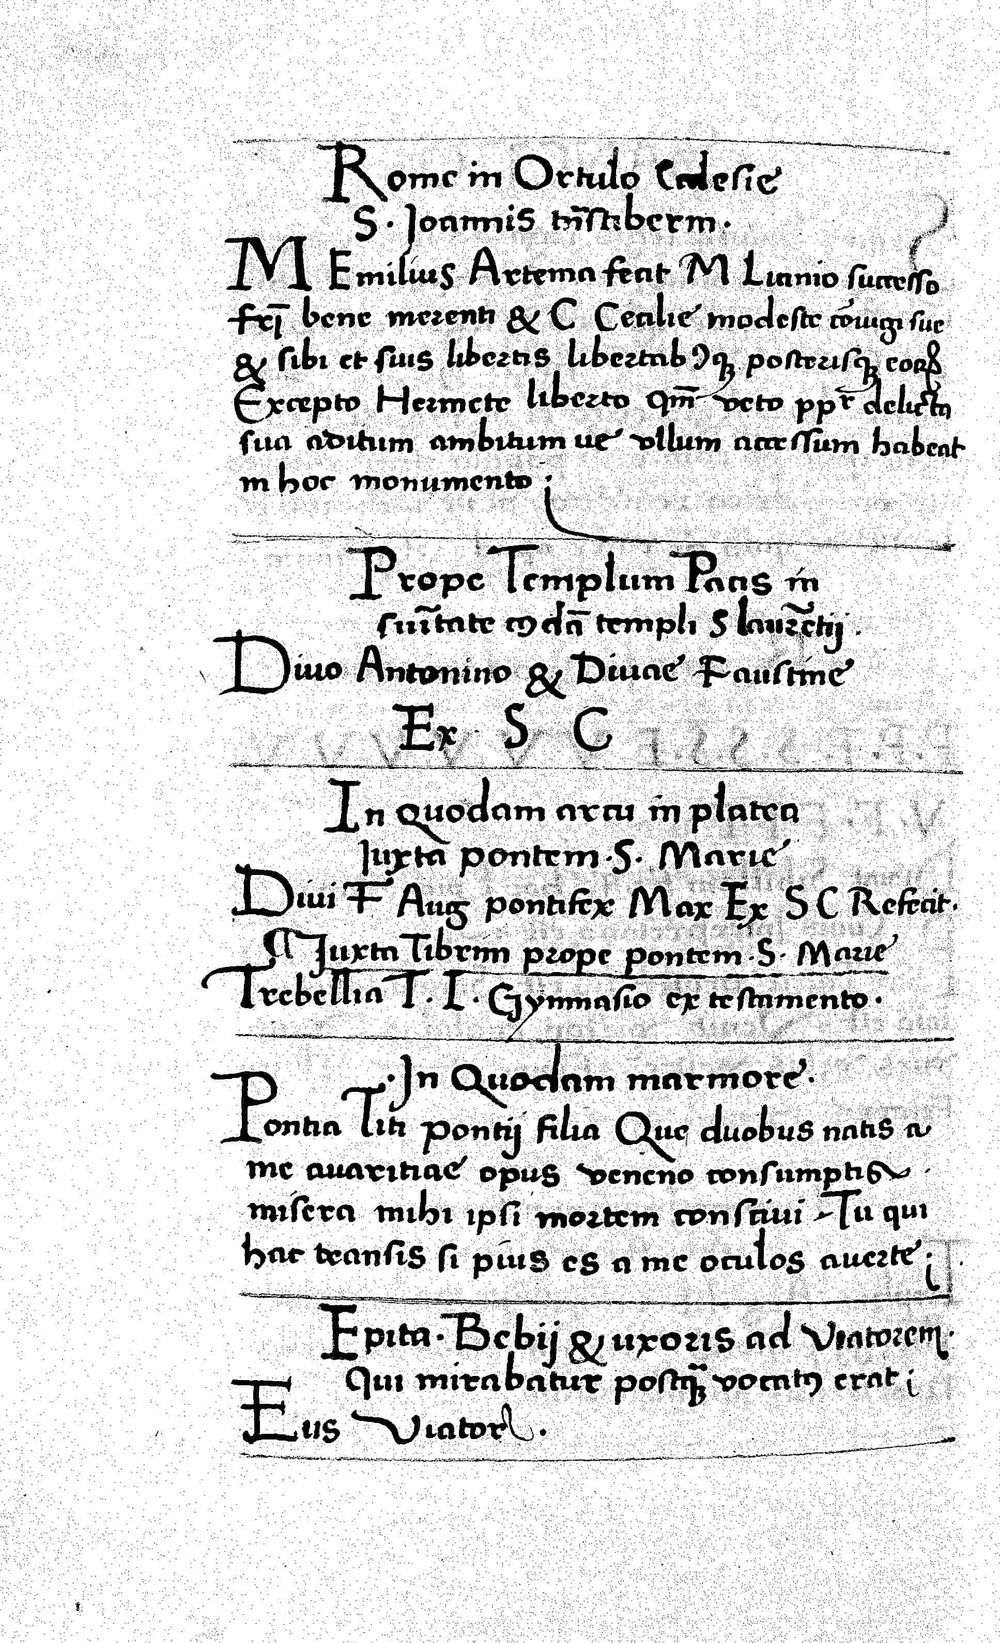 Rome in Ortulo Ecclesie
S. Joannis tn̄stiberim.
M Emilius Artema fecit M Licinio successo
frī bene merenti & C Cecilie modeste cōiugi sue
& sibi et suis libertis libertabꝰqꝫ posterisqꝫ eorꝝ
Excepto Hermete liberto qm̄ veto ppr̄ delicta
sua aditum ambitum ue vllum accessum habeat
in hoc monumento
Prope Templum Pacis in
suītate ꝯdā templi S laurētij.
Diuo Antonino & Diuae Faustine
Ex S C
In quodam arcu in platea
Juxta pontem . S. Marie
Diui F Aug pontifex Max Ex S C Refecit.
¶ Juxta Tiberim prope pontem . S. Marie
Trebellia T. I. Gymnasio ex testamento.
.In Quodam marmore.
Pontia Titi pontij filia Que duobus natis a
me auaritiae opus veneno consumptis
misera mihi ipsi mortem consciui Tu qui
hac transis si pius es a me oculos auerte.
Epita. Bebij & uxoris ad Viatorem.
Qui mirabatur postqꝫ vocatꝰ erat
Eus Viator.